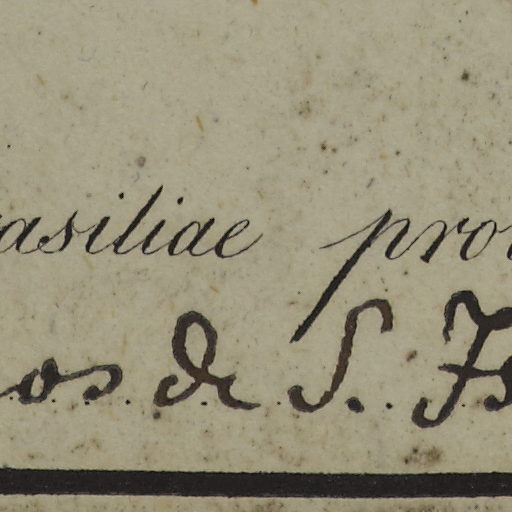 asiliae pro
os de S. Is